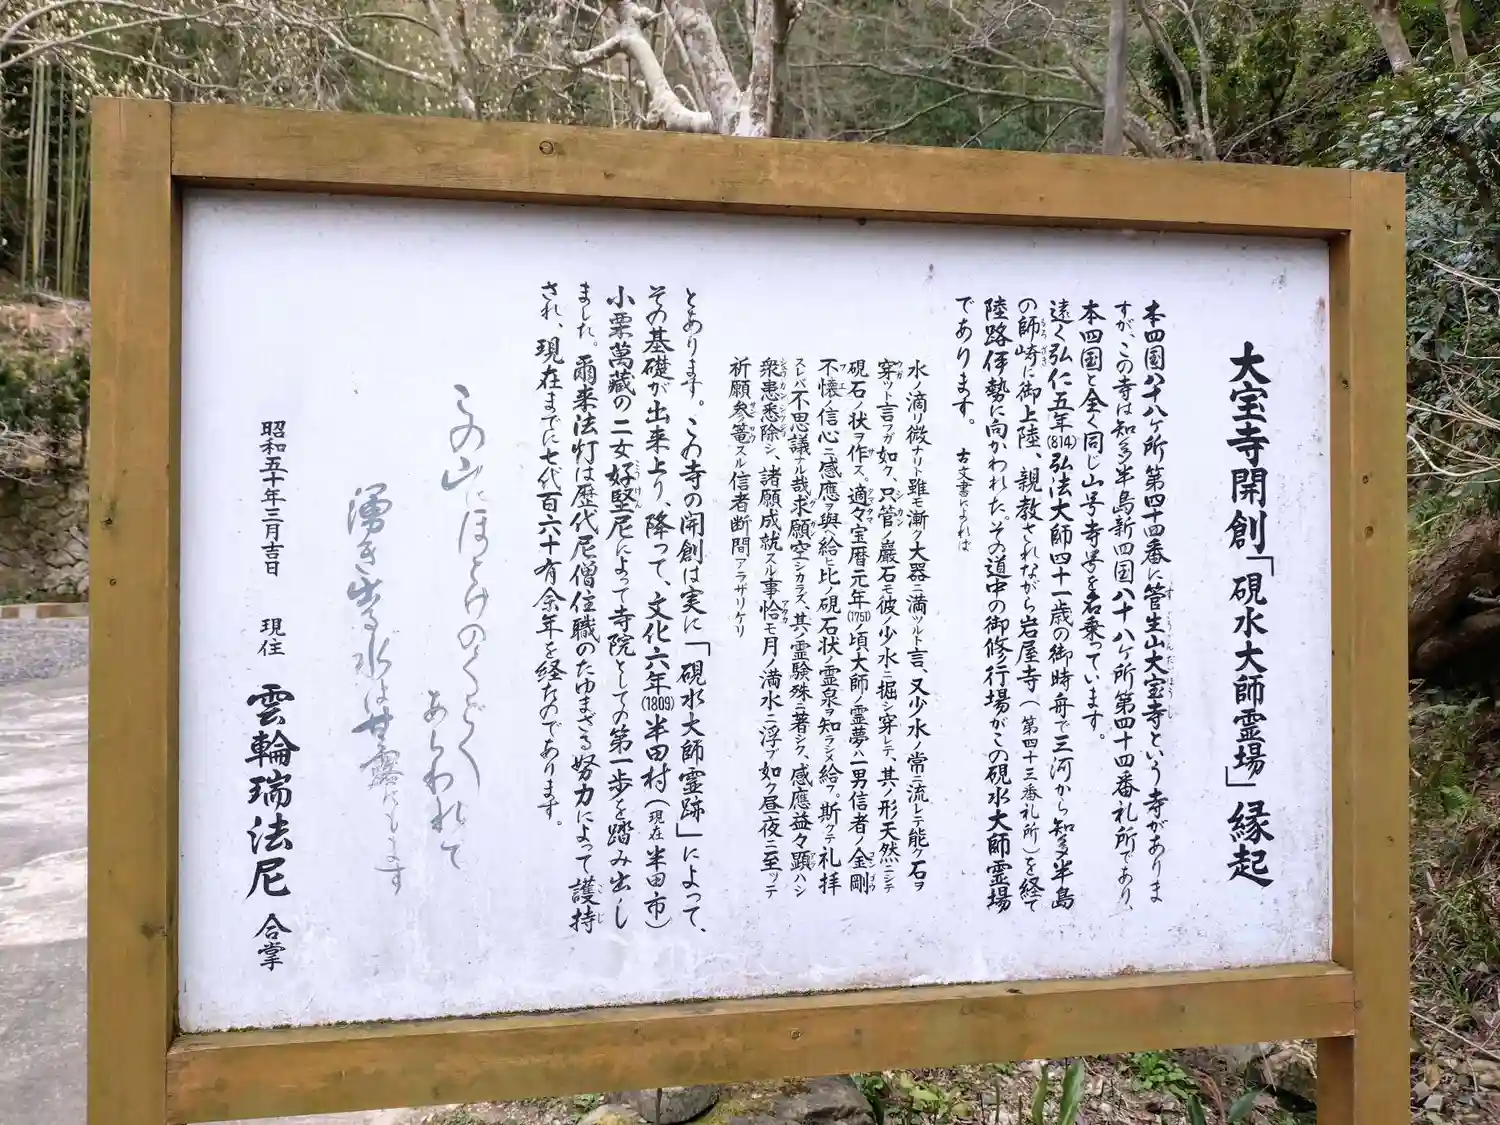 大宝寺開創「硯水大師霊場」縁起
本四国八十八ヶ所第四十四番に管生山大宝寺という寺がありま
すが、この寺は知多半島新四国八十八ヶ所第四十四番札所であり、
本四国と全く同じ山号寺号を名乗っています。
遠く弘仁五年(814)弘法大師四十一歳の御時舟で三河から知多半島
の師崎に御上陸、親教されながら岩屋寺(第四十三番札所)を経て
陸路伊勢に向かわれた。その道中の御修行場がこの硯水大師霊場
であります。 古文書によれば
水ノ滴リ微ナリト雖モ漸ク大器ニ満ツルト言、又少水ノ常ニ流レテ能ク石ヲ
穿ツト言フガ如ク、只管ノ巖石モ彼ノ少水ニ掘シ穿レテ、其ノ形天然ニシテ
硯石ノ状ヲ作ス。適々宝暦元年(1751)ノ頃大師ノ霊夢ハ一男信者ノ金剛
不懐ノ信心ニ感應ヲ與ヘ給ヒ比ノ硯石状ノ霊泉ヲ知ラシメ給フ。斯クテ礼拝
スレバ不思議ナル哉求願空シカラズ、其ノ霊験殊ニ著シク、感應益々顕ハシ
衆患悉除シ、諸願成就スル事恰モ月ノ満水ニ浮ブ如ク昼夜ニ至ッテ
祈願参篭スル信者断間アラザリケリ
とあります。この寺の開創は実に「硯水大師霊跡」によって、
その基礎が出来上り、降って、文化六年(1809)半田村(現在半田市)
小栗萬藏の二女好堅尼によって寺院としての第一歩を踏み出し
ました。爾来法灯は歴代尼僧住職のたゆまざる努力によって護持
され、現在までに七代百六十有余年を経たのであります。
この山にほとけのくどく
あらわれて
湧き出る水は甘露にもます
昭和五十年三月吉日 現住 雲輪瑞法尼 合掌